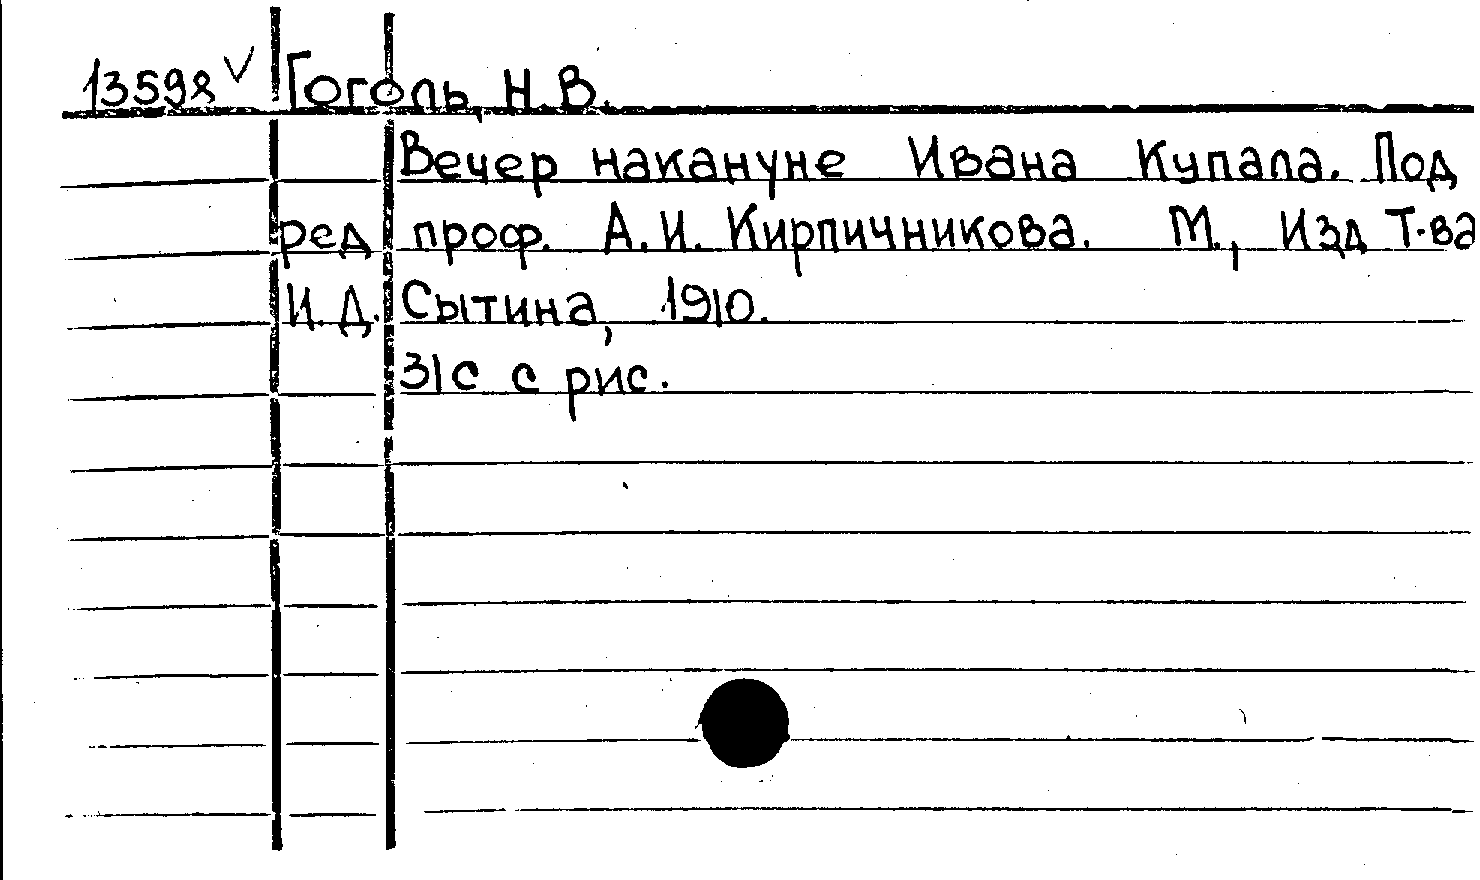 13598 √ Гоголь, Н.В.
Вечер накануне Ивана Купала. Под
ред проф. А.И. Кирпичникова. М., Изд Т-ва
И.Д. Сытина, 1910.
31с с рис.